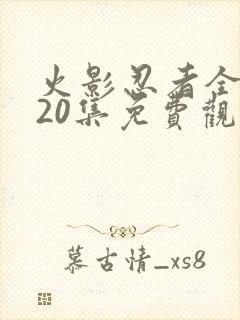 火影忍者全
20集免費觀
慕古情_xs8